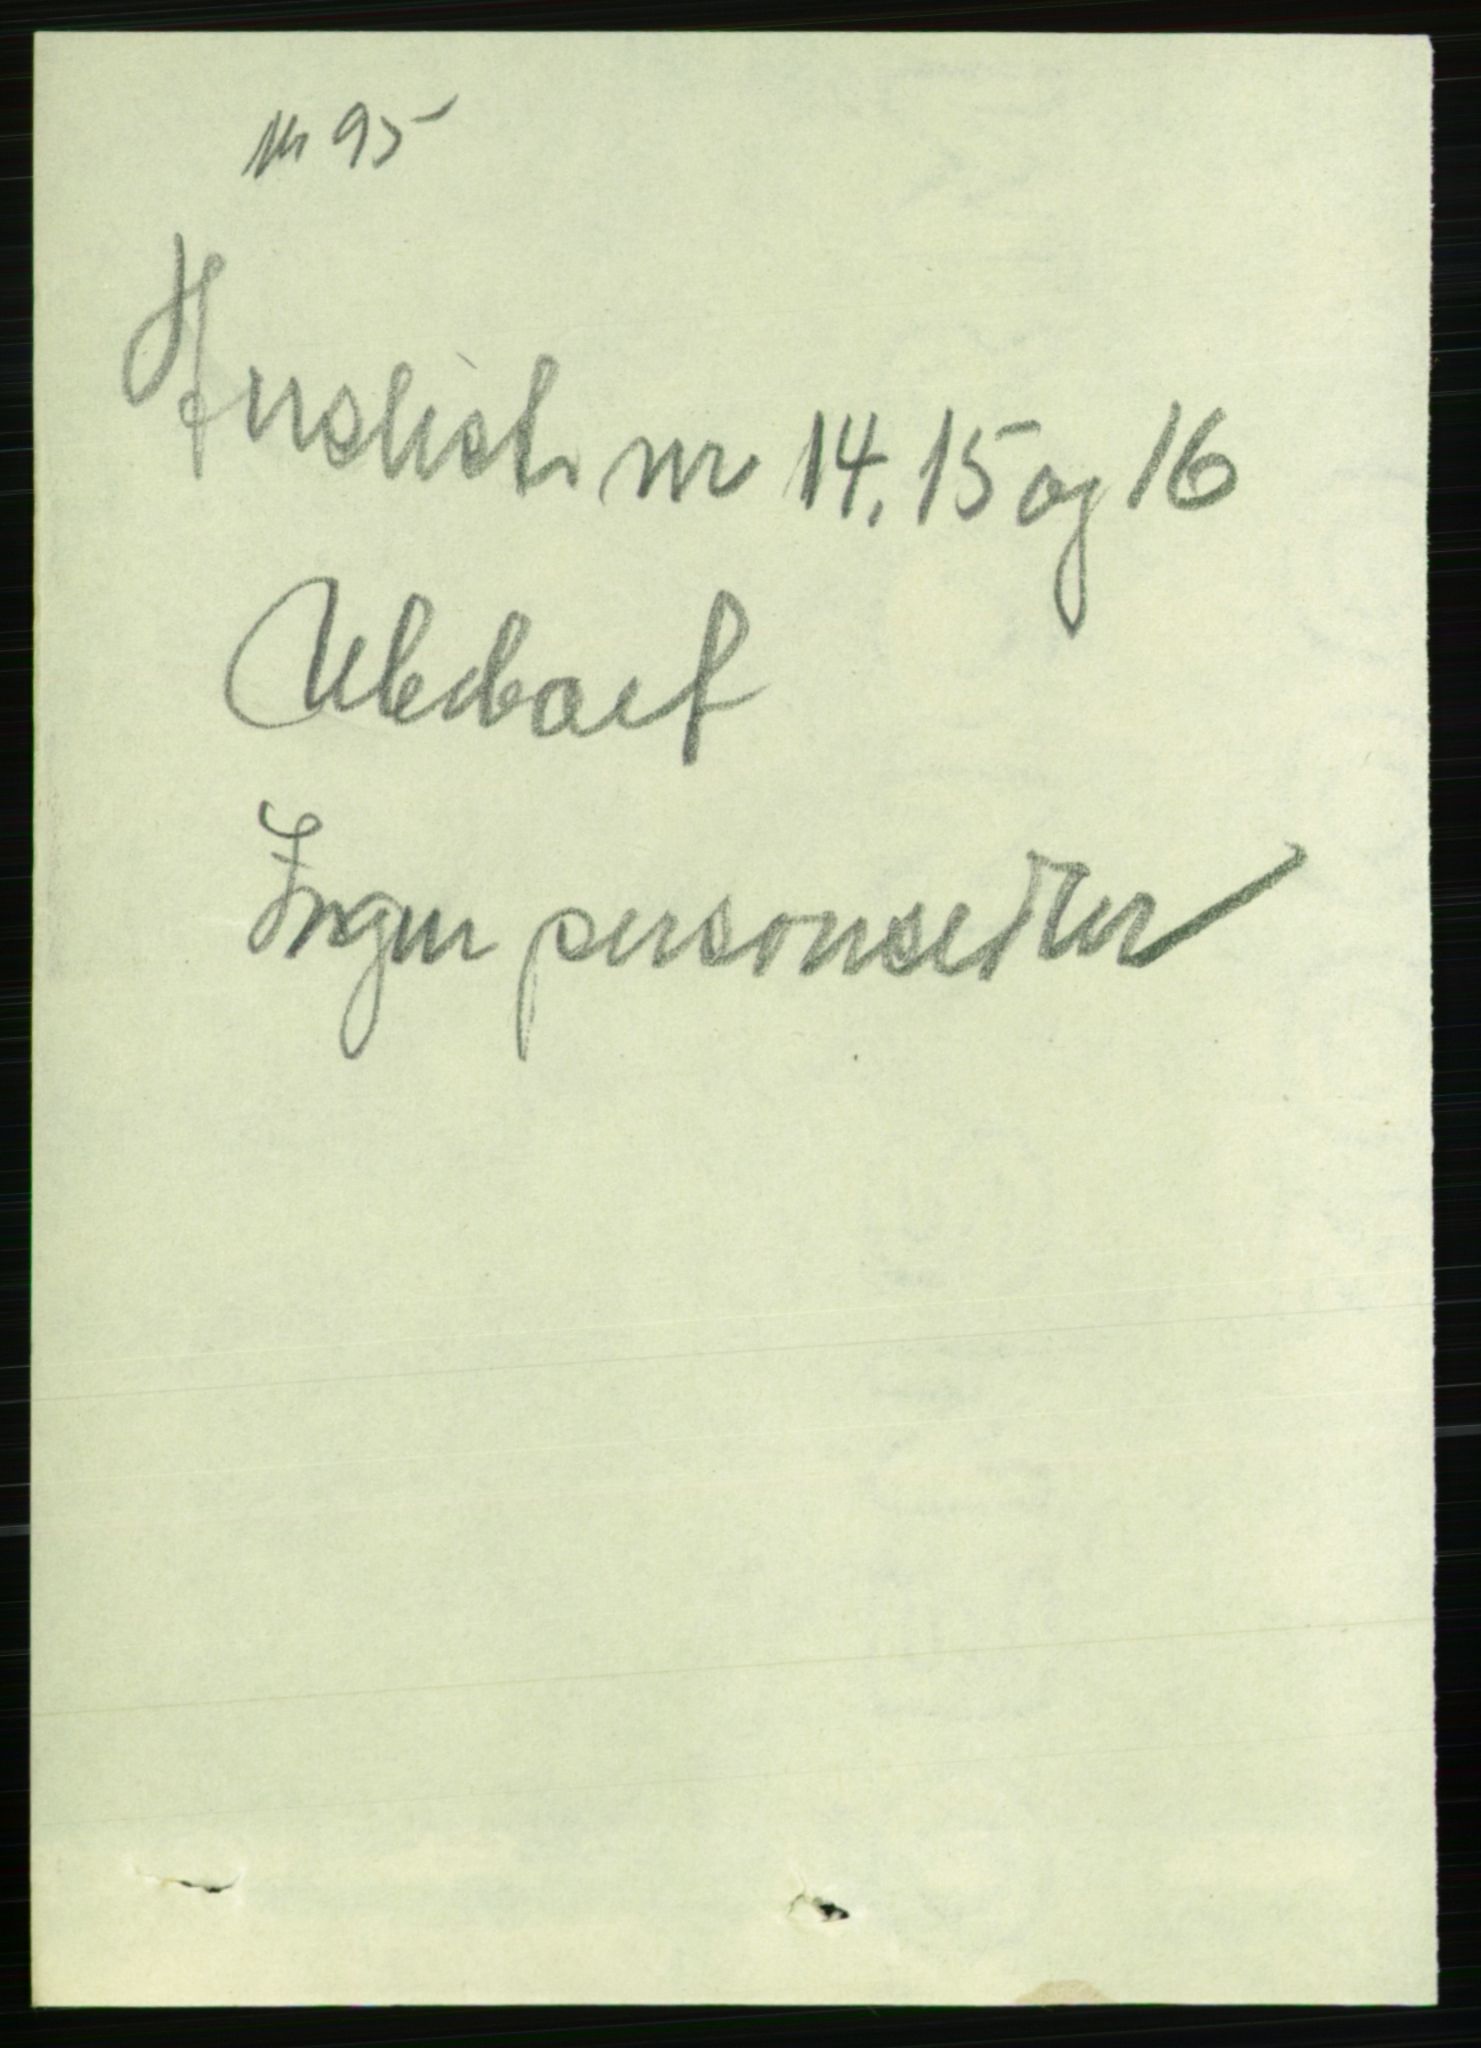 Nr 95
Husliste nr 14, 15 og 16
Ubeboet
Ingen personsedler